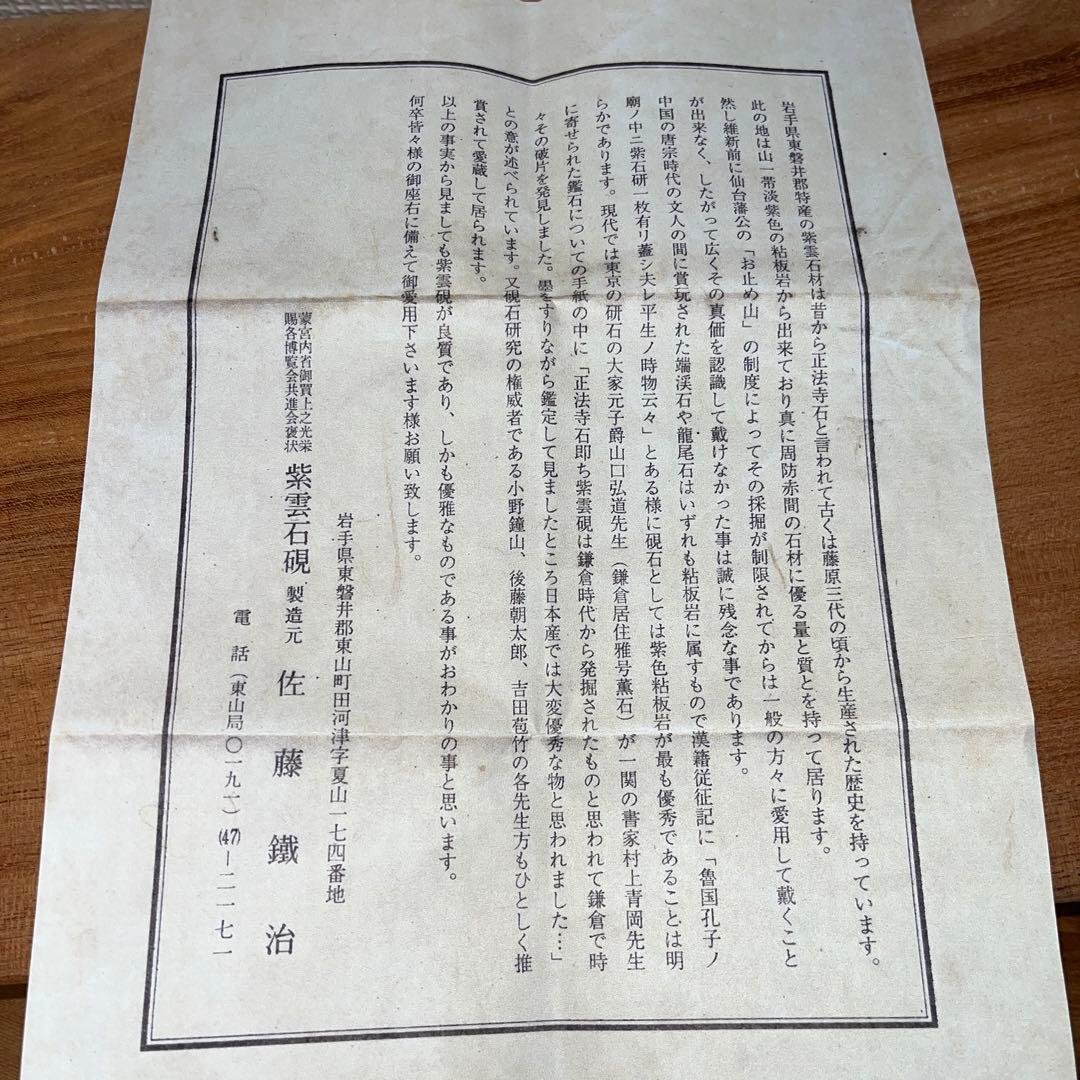 岩手県東磐井郡特産の紫雲石材は昔から正法寺石と言われて古くは藤原三代の頃から生産された歴史を持っています。
此の地は山一帯淡紫色の粘板岩から出来ており真に周防赤間の石材に優る量と質とを持って居ります。
然し維新前に仙台藩公の「お止め山」の制度によってその採掘が制限されてからは一般の方々に愛用して戴くこと
が出来なく、したがって広くその真価を認識して戴けなかった事は誠に残念な事であります。
中国の唐宗時代の文人の間に賞玩された端渓石や龍尾石はいずれも粘板岩に属すもので漢籍従征記に「魯国孔子ノ
廟ノ中ニ紫石研一枚有リ蓋シ夫レ平生ノ時物云々」とある様に硯石としては紫色粘板岩が最も優秀であることは明
らかであります。現代では東京の研石の大家元子爵山口弘道先生（鎌倉居住雅号薫石）が一関の書家村上青岡先生
に寄せられた鑑石についての手紙の中に「正法寺石即ち紫雲硯は鎌倉時代から発掘されたものと思われて鎌倉で時
々その破片を発見しました。墨をすりながら鑑定して見ましたところ日本産では大変優秀な物と思われました…」
との意が述べられています。又硯石研究の権威者である小野鐘山、後藤朝太郎、吉田苞竹の各先生方もひとしく推
賞されて愛蔵して居られます。
以上の事実から見ましても紫雲硯が良質であり、しかも優雅なものである事がおわかりの事と思います。
何卒皆々様の御座右に備えて御愛用下さいます様お願い致します。
岩手県東磐井郡東山町田河津字夏山一七四番地
蒙宮内省御買上之光栄
賜各博覧会共進会褒状
紫雲石硯 製造元 佐藤鐵治
電話（東山局〇一九一）(47)ー二一七一